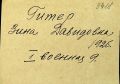 3918
Гитер
Зина Давидовна
1926.
I военная д.